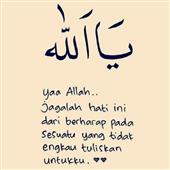 يَا اَللّٰه
yaa Allah..
jagalah hati ini
dari berharap pada
sesuatu yang tidak
engkau tuliskan
untukku. ♥♥